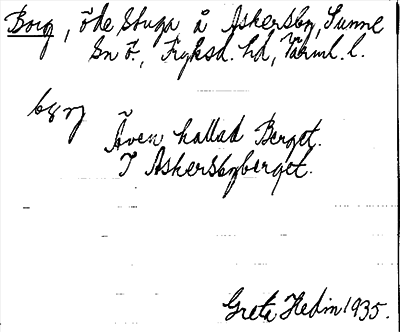 Borg, öde stuga å Askersby, Sunne
sn ö., Fryksd. hd, Värml. l.
Även kallad Berget.
I Askersbyberget.
Greta Hedin 1935.